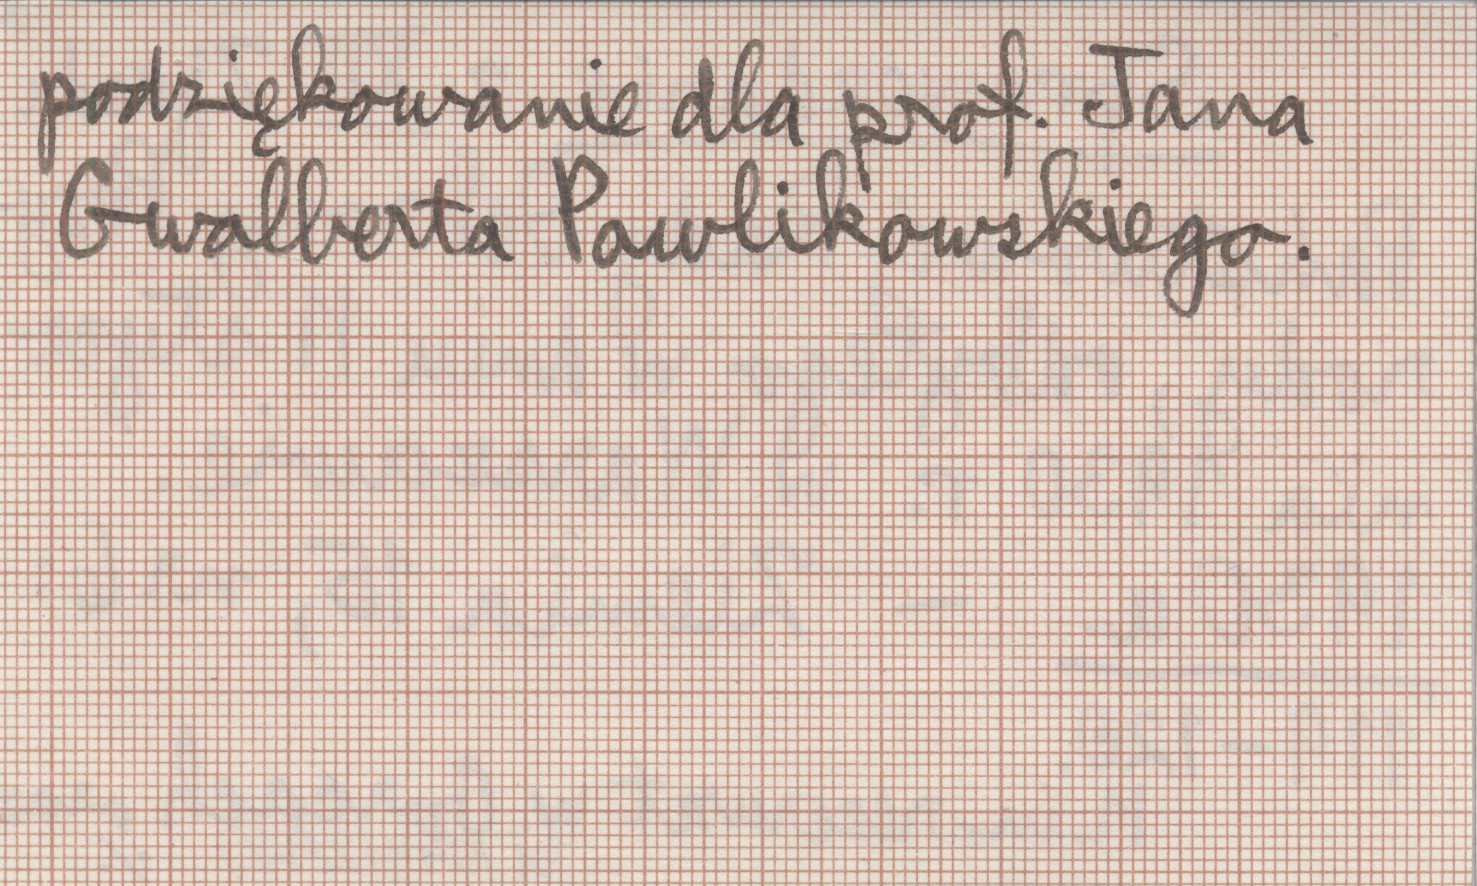 podziękowanie dla prof. Jana
Gwalberta Pawlikowskiego.